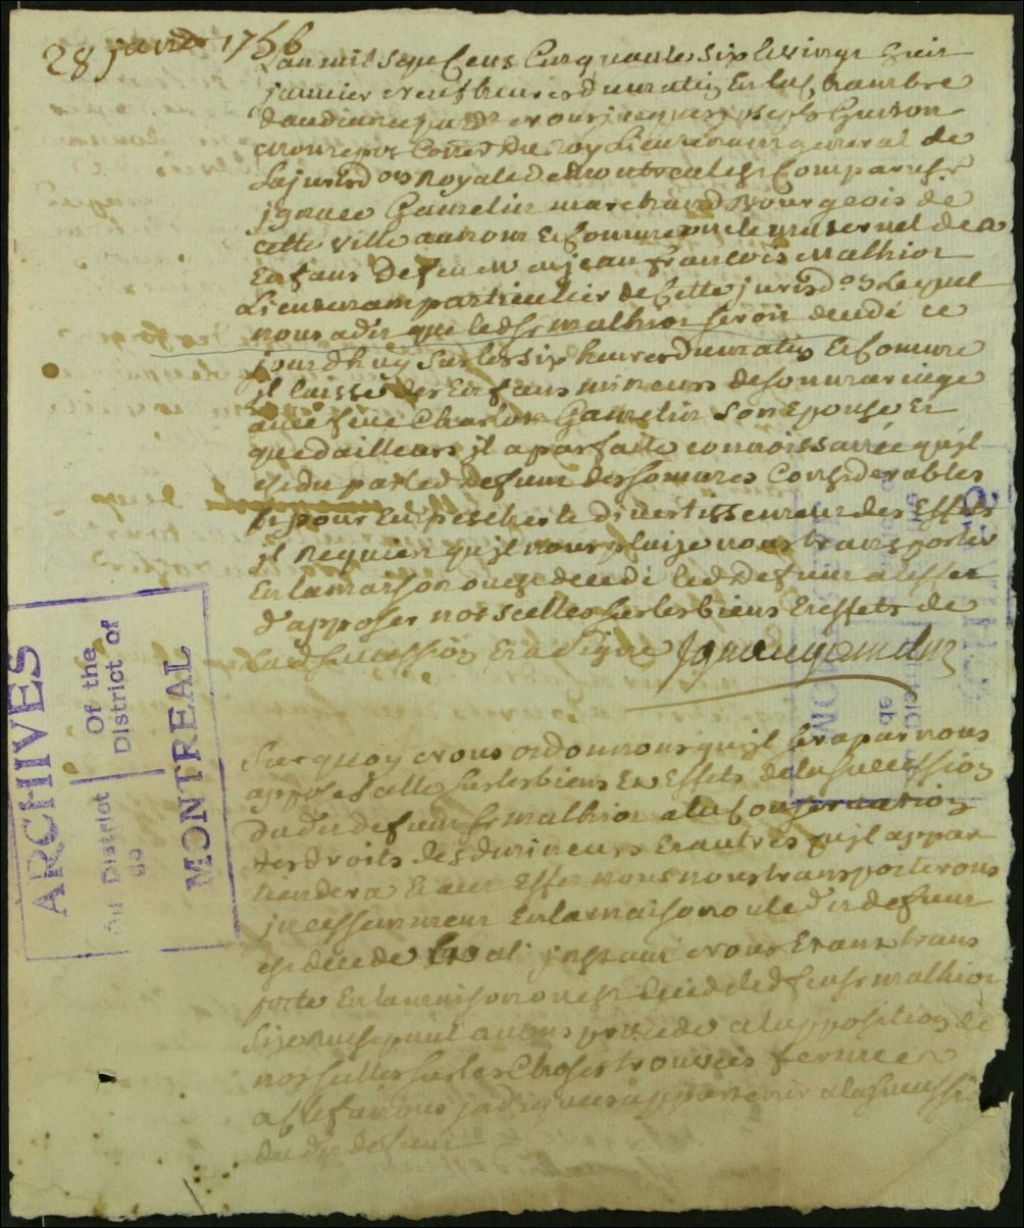 28 janv. 1756
L'an mil sept Cens Cinquante Six le vingt huit
janvier neuf heures du matin En la chambre
d'audiance pard nous jacques joseph Guiton
monrepos Coner du roy Lieutenant general de
La jurisdon Royale de Montreal Est Comparu Sr
jgnace Gamelin marchand Bourgeois de
cette ville au nom Et Comme oncle maternel des
Enfans De feu Me jean françois Malhiot
Lieutenant particulier de Cette jurisdon Lequel
nous a dit que led Sr malhiot seroit decedé ce
jourd'huy Sur les six heures du matin Et Comme
jl laisse des Enfans mineurs de son mariage
avec feue Charlotte Gamelin Son Epouse Et
que d'ailleurs jl a parfaite connoissance qu'jl
est du par led Defunt des sommes Considerables
Et pour Empescher le divertissement des Effets
jl Requiert qu'jl nous plaise nous transporter
En la maison ou est decedé led Defunt a l'effet
d'apposer nos scellés sur les biens Et effets de
Lad Succession Et a signé Ignace gamelin
Sur quoy nous ordonnons qu'jl sera par nous
apposé scellé sur les biens Et Effets de la succession
Dudit defunt Sr malhiot a la Conservation
des droits desd mineurs Et autres qu'jl appar
tiendra Et a cet Effet nous nous transporterons
jncessamment En la maison ou led it defunt
est decedé Et a l'jnstant nous Etant trans
porté En la maison ou est decedé led feu Sr malhiot
Size rue st paul avons procedé a l'apposition de
nos scellés sur les Choses trouvées fermées
a Clef a nous jndiquées appartenir a la succession
dudit defunt
ARCHIVES
Du District | Of the
de | District of
MONTREAL